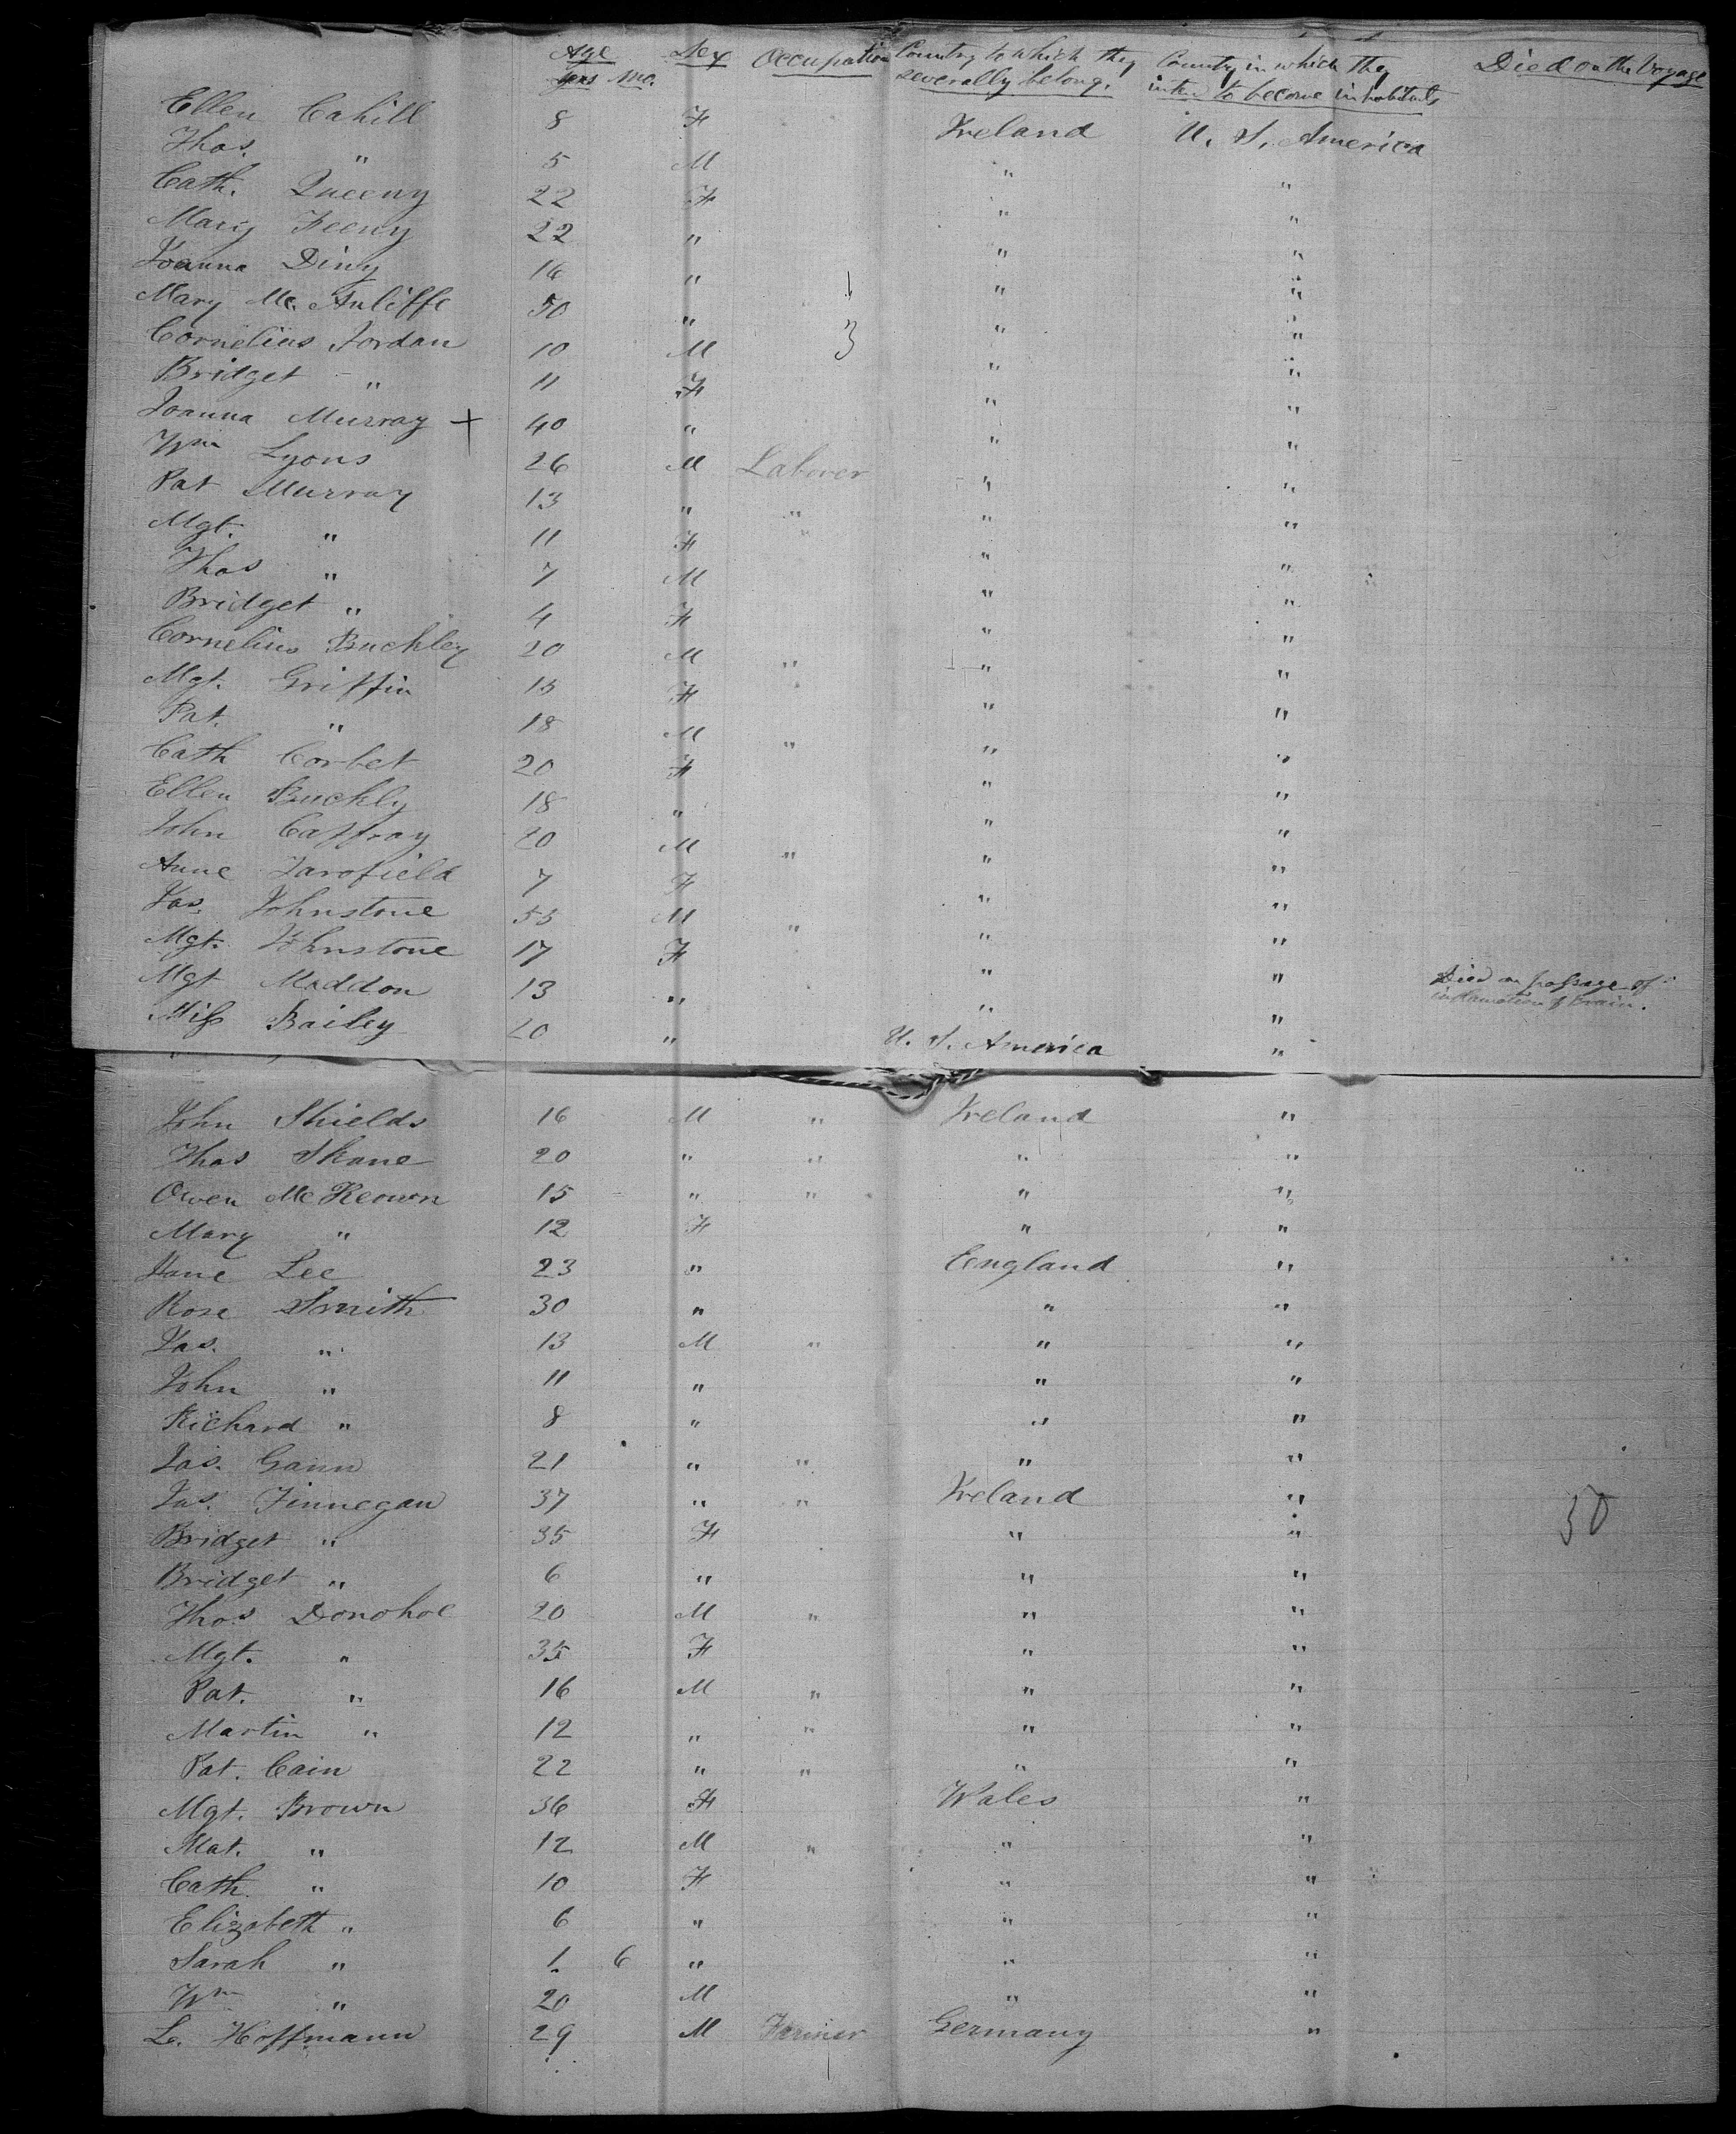 Age Sex Occupation Country to which they Country in which they Died on the Voyage
Yrs Mo. severally belong. intend to become inhabitants
Ellen Cahill 8 F Ireland U. S. America
Thos. " 5 M " "
Cath. Queeny 22 F " "
Mary Feeny 22 " " "
Joanna Diny 16 " " "
Mary Mc Auliffe 50 " " "
Cornelius Jordan 10 M 3 " "
Bridget " 11 F " "
Joanna Murray + 40 " " "
Wm Lyons 26 M Laborer " "
Pat Murray 13 " " " "
Mgt. " 11 F " "
Thos " 7 M " "
Bridget " 4 F " "
Cornelius Buckley 20 M " " "
Mgt. Griffin 15 F " "
Pat. " 18 M " " "
Cath Corbet 20 F " "
Ellen Buckly 18 " " "
John Caffray 20 M " " "
Anne 7 F " "
Jas. Johnstone 55 M " " "
Mgt. Johnstone 17 F " "
Mgt Maddon 13 " " " Died on passage of
inflamation of Brain.
Miss Bailey 20 " U. S. America "
John Shields 16 M " Ireland "
Thos Skane 20 " " " "
Owen McKeown 15 " " " "
Mary " 12 F " "
Jane Lee 23 " England "
Rose Smith 30 " " "
Jas. " 13 M " " "
John " 11 " " "
Richard " 8 " " "
Jas. Gann 21 " " " "
Jas. Finnegan 37 " " Ireland "
Bridget " 35 F " " 50
Bridget " 6 " " "
Thos Donohoe 20 M " " "
Mgt. " 35 F " "
Pat. " 16 M " " "
Martin " 12 " " " "
Pat. Cain 22 " " " "
Mgt. Brown 36 F Wales "
Mat. " 12 M " " "
Cath. " 10 F " "
Elizabeth " 6 " " "
Sarah " 1 6 " " "
Wm " 20 M " "
L. Hoffmann 29 M Farmer Germany "